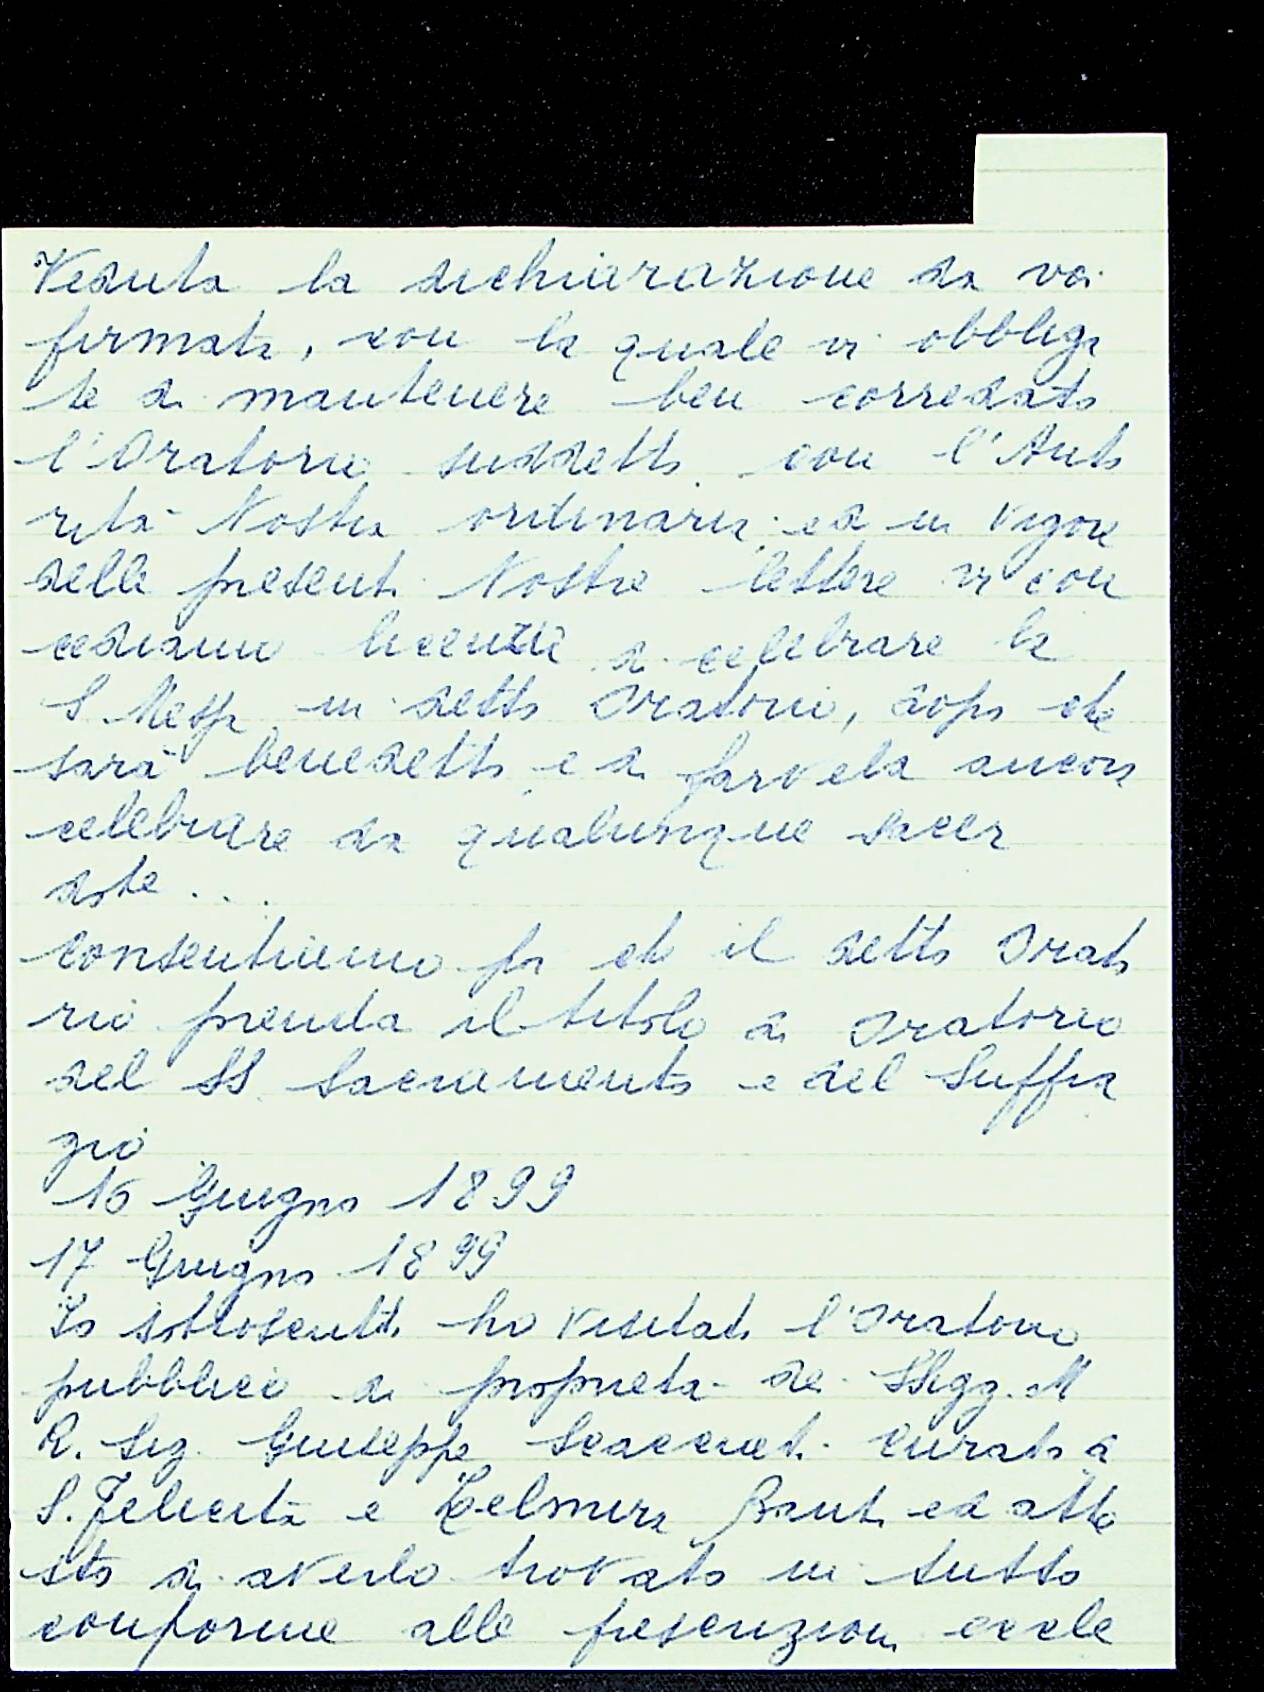 Veduta la dichiarazione da voi
firmata, con la quale vi obbliga
te di mantenere ben corredato
l'Oratorio suddetto, con l'Auto
rità Nostra ordinaria ed in vigore
delle presenti Nostre lettere vi con
cediamo licenza di celebrare la
S. Messa in detto Oratorio, dopo che
sarà benedetto e di farvela ancora
celebrare da qualunque sacer
dote ....
consentiamo poi che il detto Orato
rio prenda il titolo di Oratorio
del SS. Sacramento e del Suffra
gio
16 Giugno 1899
17 Giugno 1899
Io sottoscritto ho visitato l'Oratorio
pubblico di proprietà dei SSigg. M
R. Sig. Giuseppe Scaccieti Curato a
S. Felicita e Zelmira Banti ed atte
sto di averlo trovato in tutto
conforme alle prescrizioni eccle